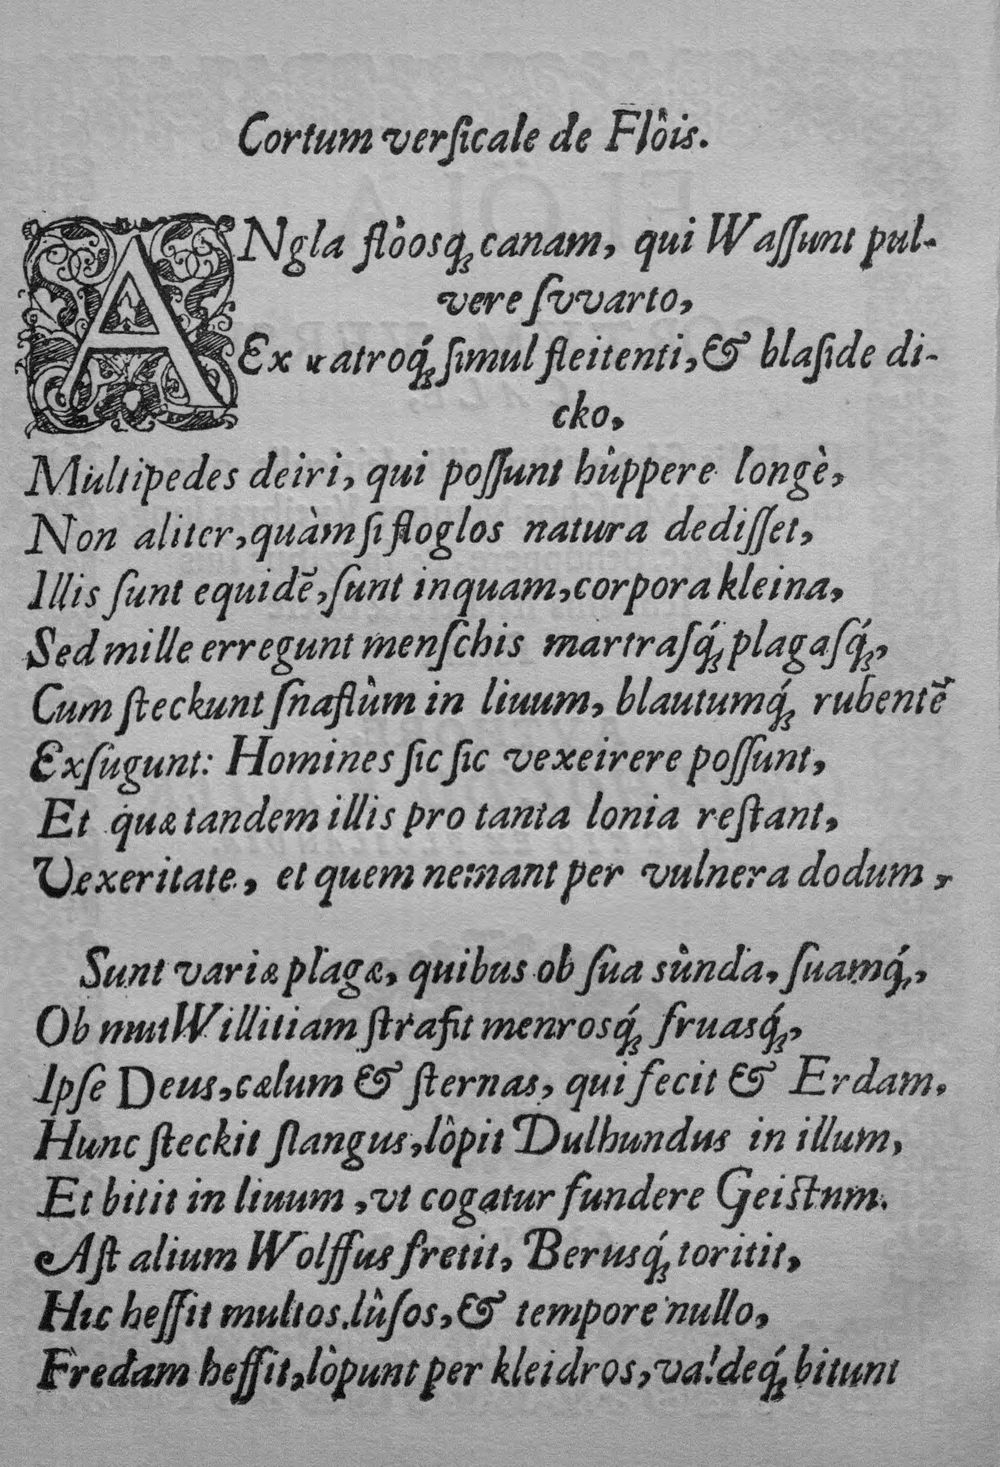 Cortum verſicale de Flôis.
ANgla flòosq́ꝫ canam, qui Waſſunt pul-
vere ſvvarto,
Ex watroq́ꝫ ſimul fleitenti, & blaſide di-
cko,
Multipedes deiri, qui poſſunt hûppere longè,
Non aliter, quàm ſi floglos natura dediſſet,
Illis ſunt equidē, ſunt inquam, corpora kleina,
Sed mille erregunt menſchis martraſq́ꝫ plagaſq́ꝫ,
Cum ſteckunt ſnaflûm in livum, blautumq́ꝫ rubentē
Exſugunt: Homines ſic ſic vexeirere poſſunt,
Et quæ tandem illis pro tanta lonia reſtant,
Vexeritate, et quem nemant per vulnera dodum,
Sunt variæ plagæ, quibus ob ſua sûnda, ſuamq́ꝫ,
Ob mutWillitiam ſtrafit menrosq́ꝫ fruasq́ꝫ,
Ipſe Deus, cælum & ſternas, qui fecit & Erdam.
Hunc ſteckit ſlangus, lôpit Dulhundus in illum,
Et bitit in livum, vt cogatur fundere Geiſtum.
Aſt alium Wolffus fretit, Berusq́ꝫ toritit,
Hic heſſit multos lûſos, & tempore nullo,
Fredam heſſit, lòpunt per kleidros, valdeq́ꝫ bitunt